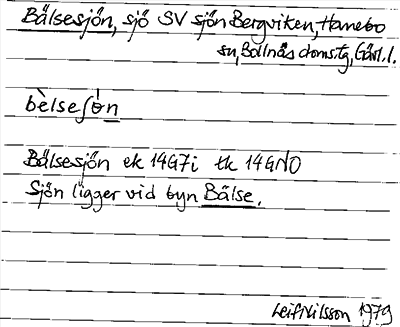 Bälsesjön, sjö SV sjön Bergviken, Hanebo
sn, Bollnäs domsg, Gävl. l.
bèlseʃön
Bälsesjön ek 14G7i tk 14GNO
Sjön ligger vid byn Bälse.
Leif Nilsson 1979